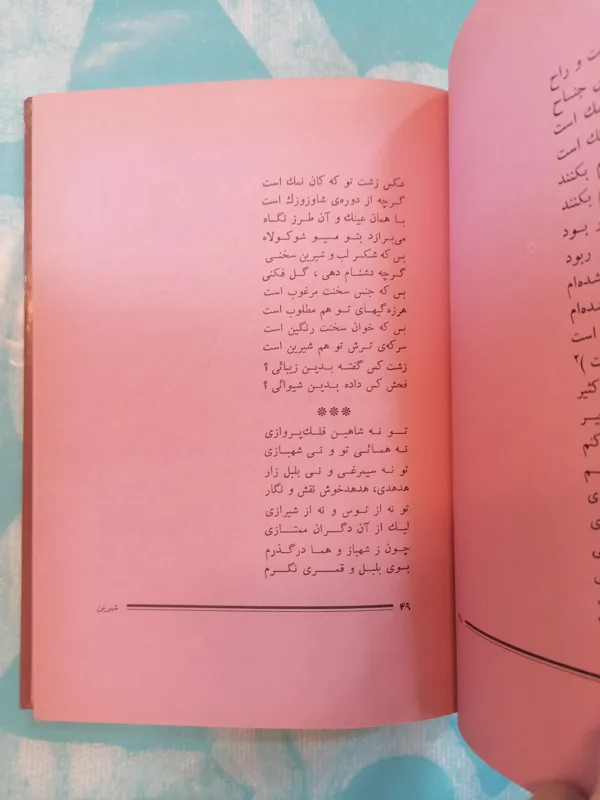 عکس زشت تو که کان نمك است
گرچه از دوره‌ی شاوزوزك است
با همان عینك و آن طرز نگاه
می‌برازد بتو مسیو شوکولاه
بس که شکر لب و شیرین سخنی
گرچه دشنام دهی ، گل فکنی
بس که جنس سخنت مرغوب است
هرزه‌گیهای تو هم مطلوب است
بس که خوان سخنت رنگین است
سرکه‌ی ترش تو هم شیرین است
زشت کس گفته بدین زیبائی ؟
فحش کس داده بدین شیوائی ؟
***
تو نه شاهین فلك‌پروازی
نه همائی تو و نی شهبازی
تو نه سیمرغی و نی بلبل زار
هدهدی، هدهدخوش نقش و نگار
تو نه از توس و نه از شیرازی
لیك از آن دگران ممتازی
چون ز شهباز و هما درگذرم
بوی بلبل و قمری نگرم
۴۹ شهرین
ت و راح
ی جناح
مك است
نك است
م بکنند
م بکنند
د بود
ربود
شده‌ام
نده‌ام
است
ت )۲
کثیر
یر
کنم
م
ی
ی
ی
ی